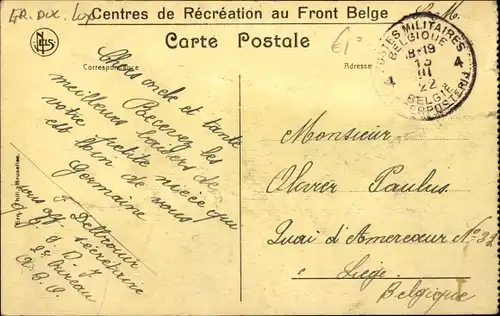 Centres de Récréation au Front Belge S.M.
NELS
Carte Postale
£1
Correspondance
Adresse
POSTES MILITAIRES
BELGIQUE
4 4
18-19
13
III
22
BELGIE
LEGERPOSTERIJ
Chers oncle et tante
Recevez les
meilleurs baisers de
votre petite nièce qui
est loin de vous
Germaine
2e Bureau
Ern. Thill, Bruxelles
Monsieur
Olivier Paulus
Quai d'Amercoeur No 32
Liège
Belgique